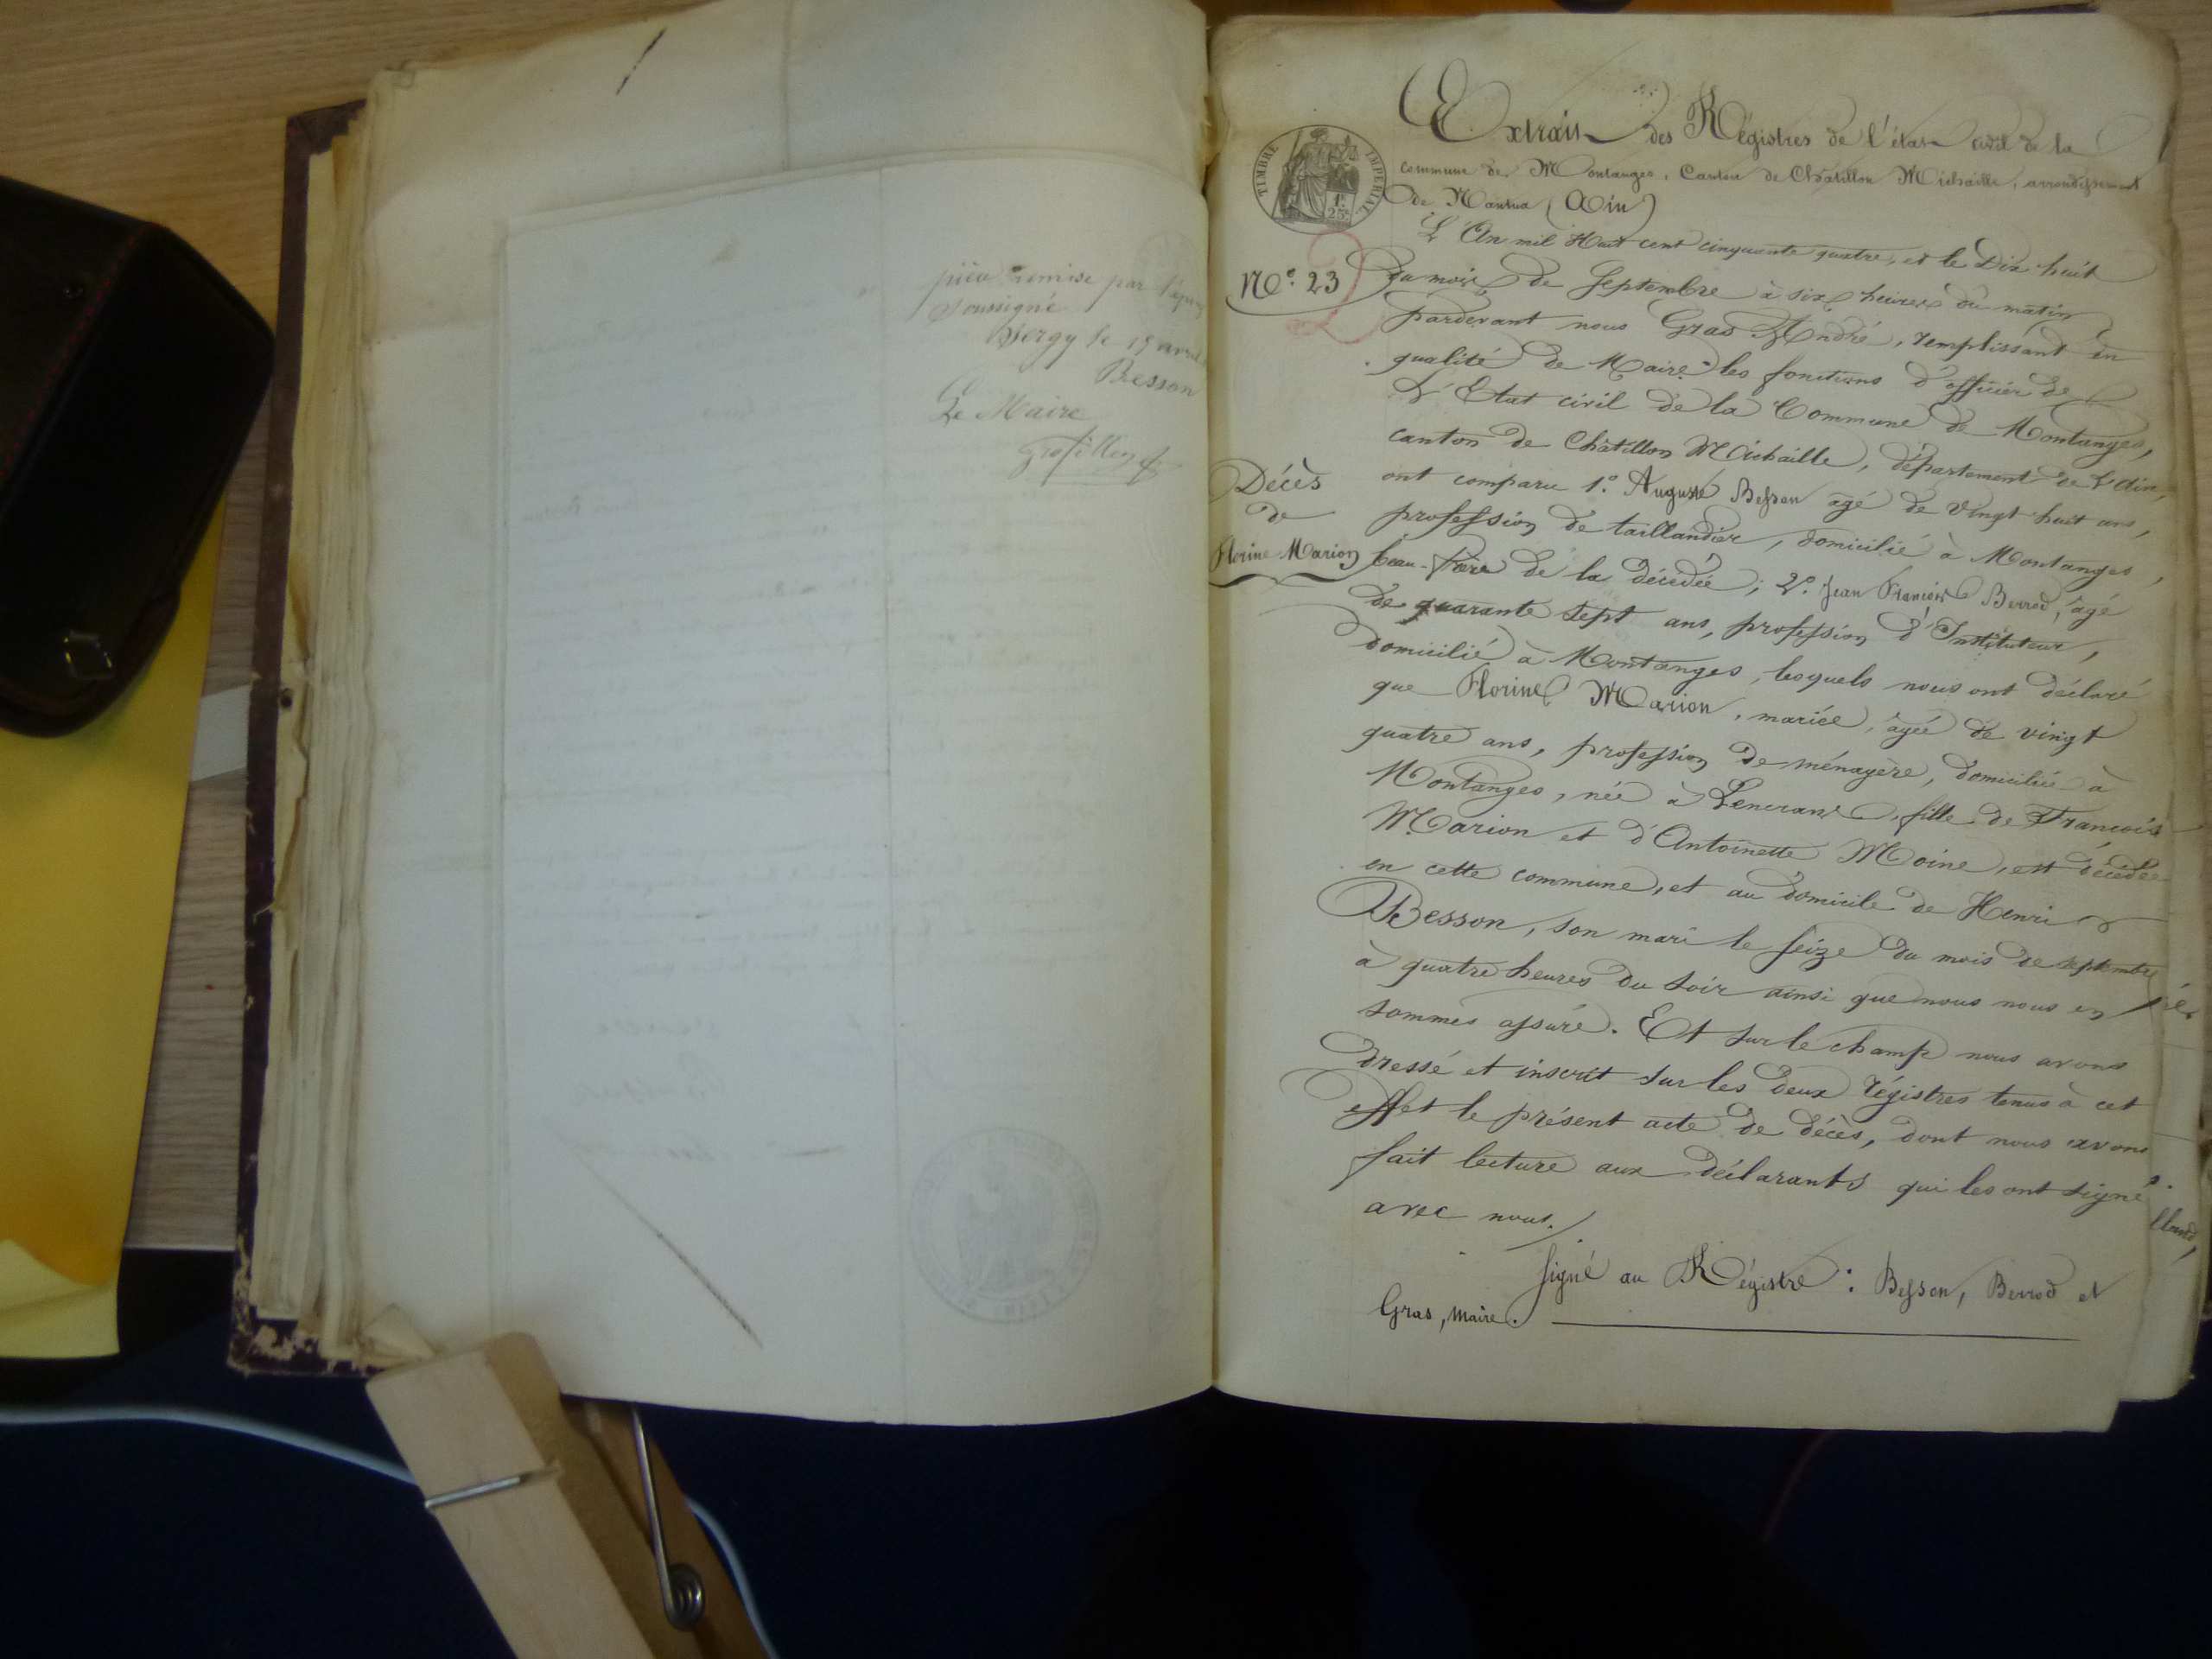 pièce remise par l'époux
soussigné
Sergy le 15 avril
Besson
Le Maire
Extrait des Régistres de l'état civil de la
commune de Montanges, Canton de Châtillon Michaille, arrondissement
de Nantua (Ain)
TIMBRE IMPERIAL
1F
25C
L'An mil Huit cent cinquante quatre, et le Dix huit
N° 23
du mois de Septembre à six heures du matin
pardevant nous Gras André, remplissant en
qualité de Maire les fonctions d'officier de
L'Etat civil de la Commune de Montanges,
canton de Châtillon Michaille, département de l'Ain,
Décès
de
Florine Marion
ont comparu 1° Auguste Besson agé de vingt huit ans,
profession de taillandier, domicilié à Montanges,
beau-frère de la décédée; 2° Jean François Berrod, âgé
de quarante sept ans, profession d'Instituteur,
domicilié à Montanges, lesquels nous ont déclaré
que Florine Marion, mariée, âgée de vingt
quatre ans, profession de ménagère, domiciliée à
Montanges, née à Lencrans, fille de François
Marion et d'Antoinette Moine, est décédée
en cette commune, et au domicile de Henri
Besson, son mari le seize du mois de septembre
à quatre heures du soir ainsi que nous nous en
sommes assuré. Et sur le champ nous avons
dressé et inscrit sur les deux régistres tenus à cet
effet le présent acte de décès, dont nous avons
fait lecture aux déclarants qui les ont signé
avec nous.
Signé au Régistre : Besson, Berrod et
Gras, maire.